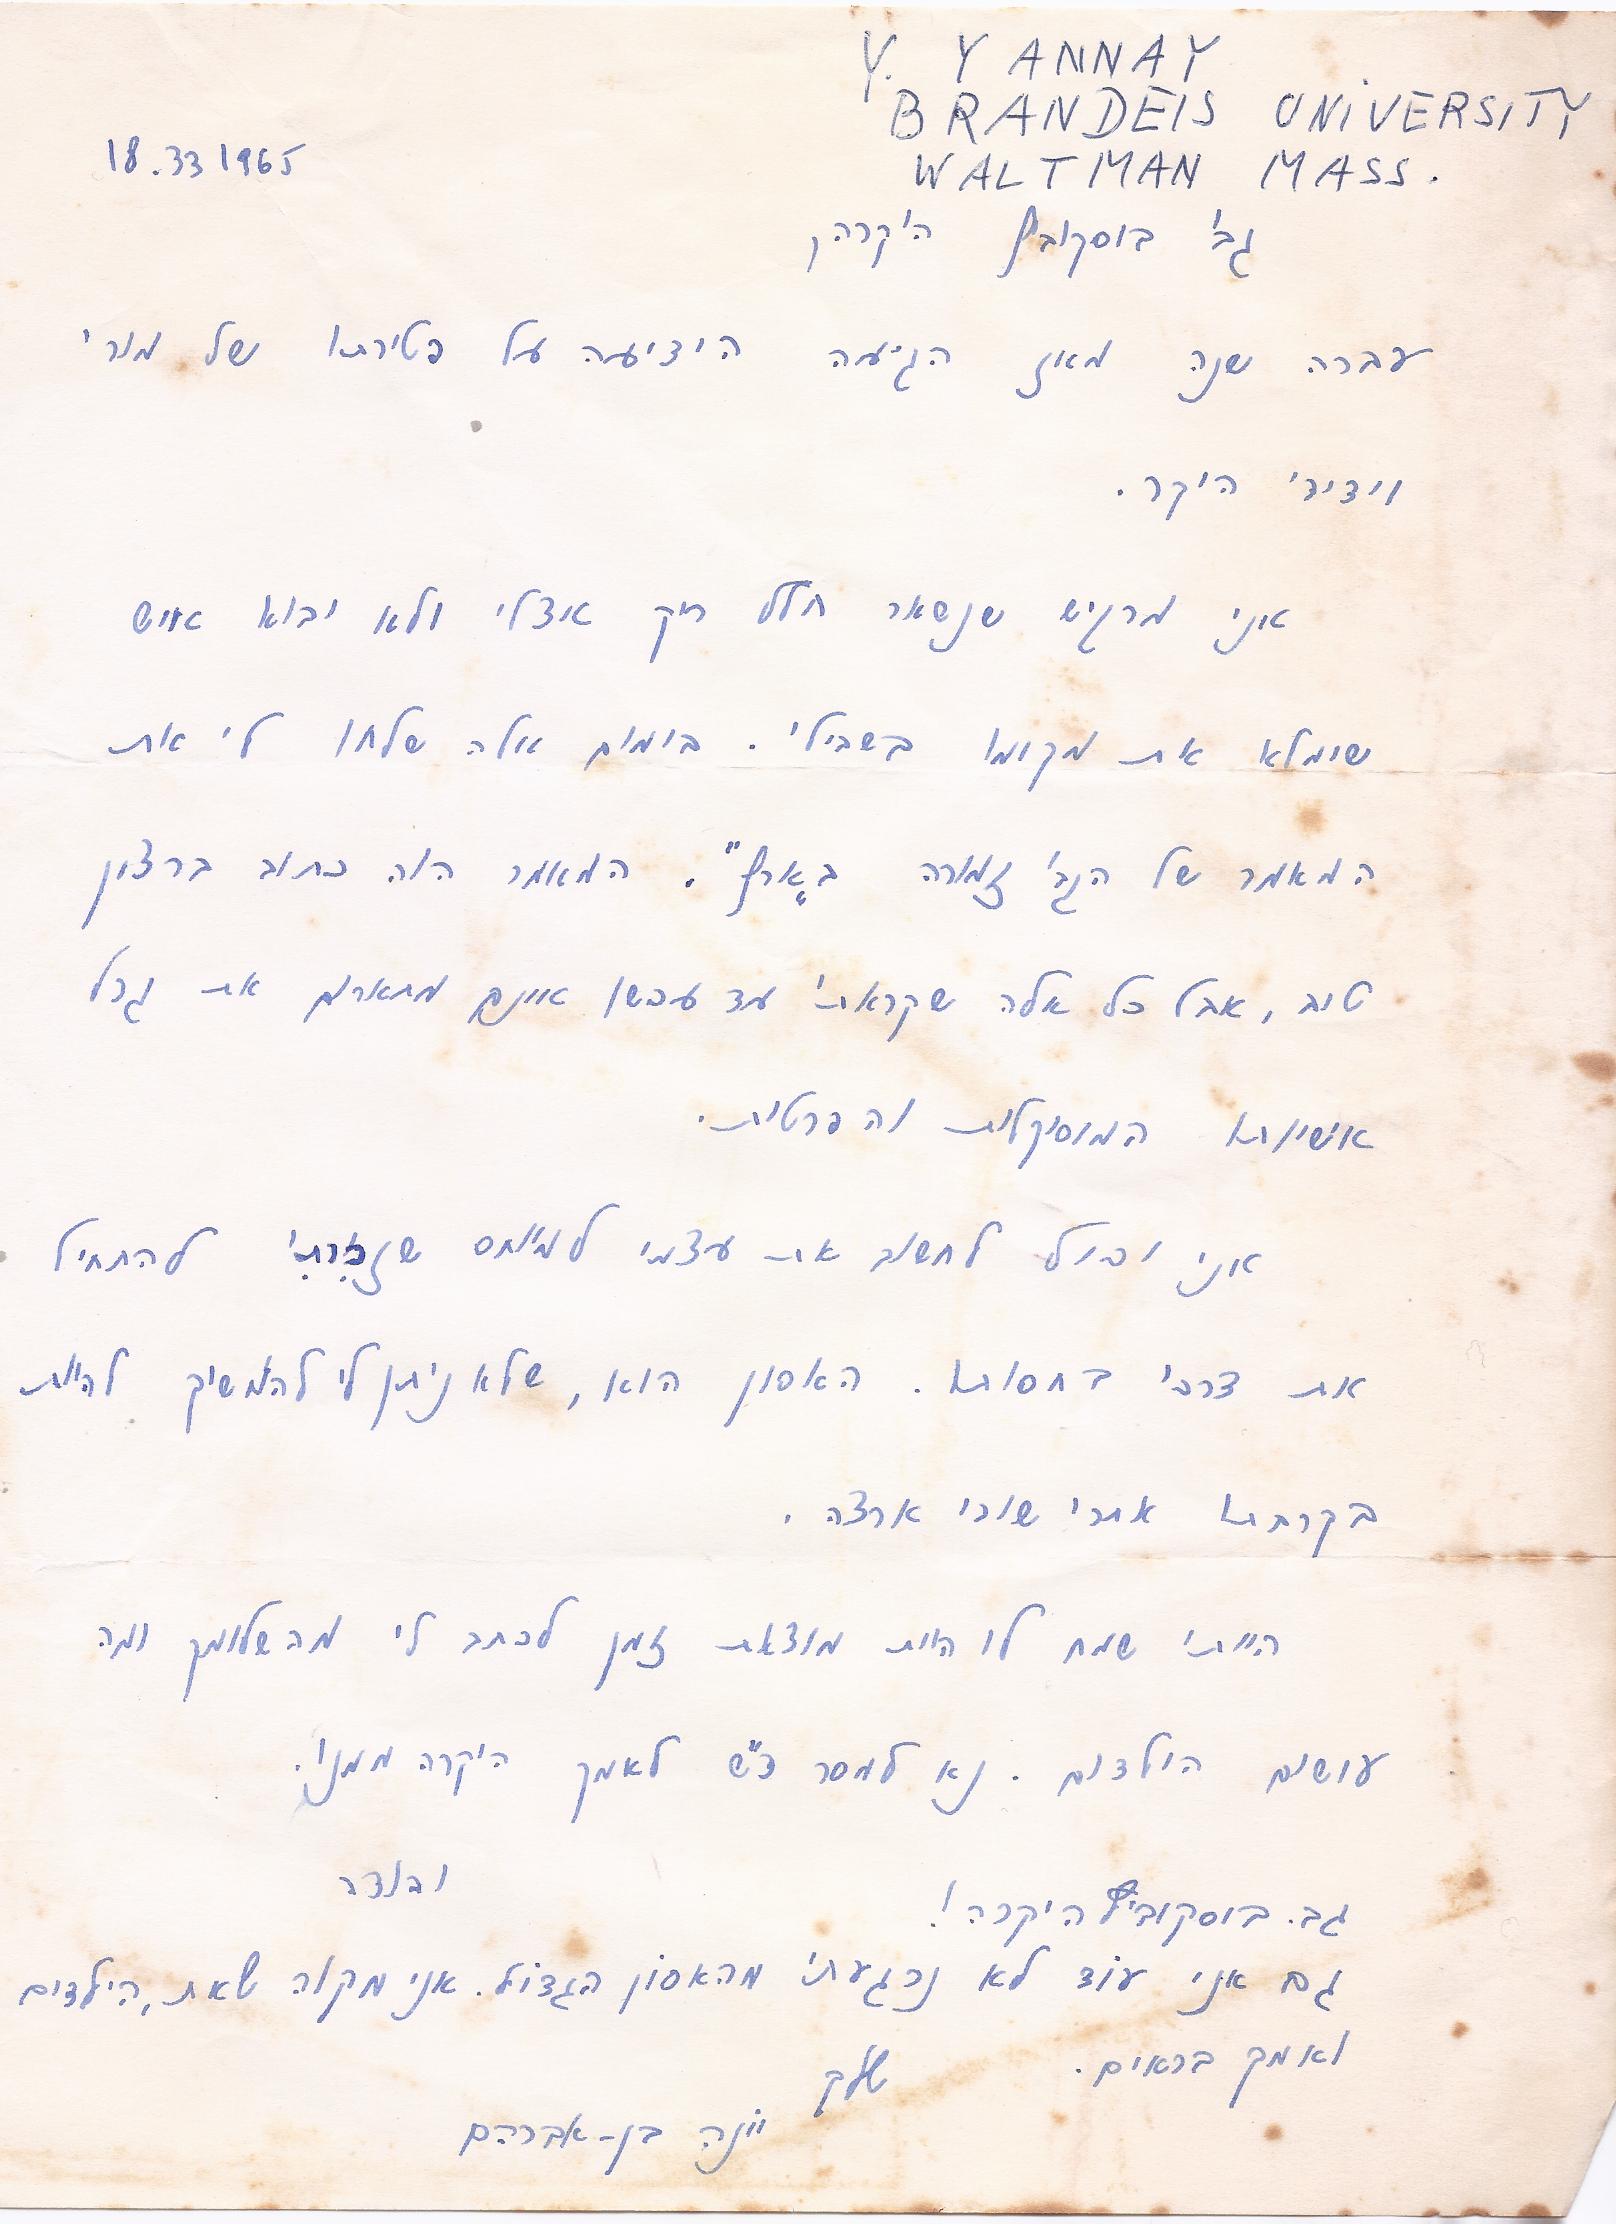 Y. YANNAY
BRANDEIS UNIVERSITY
WALTMAN MASS.
18.33 1965
גב' בוסקוביץ היקרה,
עברה שנה מאז הגיעה הידיעה על פטירתו של מורי
וידידי היקר.
אני מרגיש שנשאר חלל ריק אצלי ולא יבוא איש
שימלא את מקומו בשבילי. בימים אלה שלחו לי את
המאמר של הגב' זמורה ב„הארץ". המאמר היה כתוב ברצון
טוב, אבל כל אלה שקראתי עד עכשו אינם מתארים את גדל
אישיותו המוסיקלית והפרטית.
אני יכול לחשוב את עצמי למיוחס שזכיתי להתחיל
את דרכי בחסותו. האסון הוא, שלא ניתן לי להמשיך להיות
בקרבתו אחרי שובי ארצה.
הייתי שמח לו היית מוצאת זמן לכתב לי מה שלומך ומה
עושים הילדים. נא למסר ד"ש לאמך היקרה ממני.
גב. בוסקוביץ היקרה!
גם אני עוד לא נרגעתי מהאסון הגדול. אני מקוה שאת, הילדים
ואמך בריאים.
שלך
יונה בן-אברהם